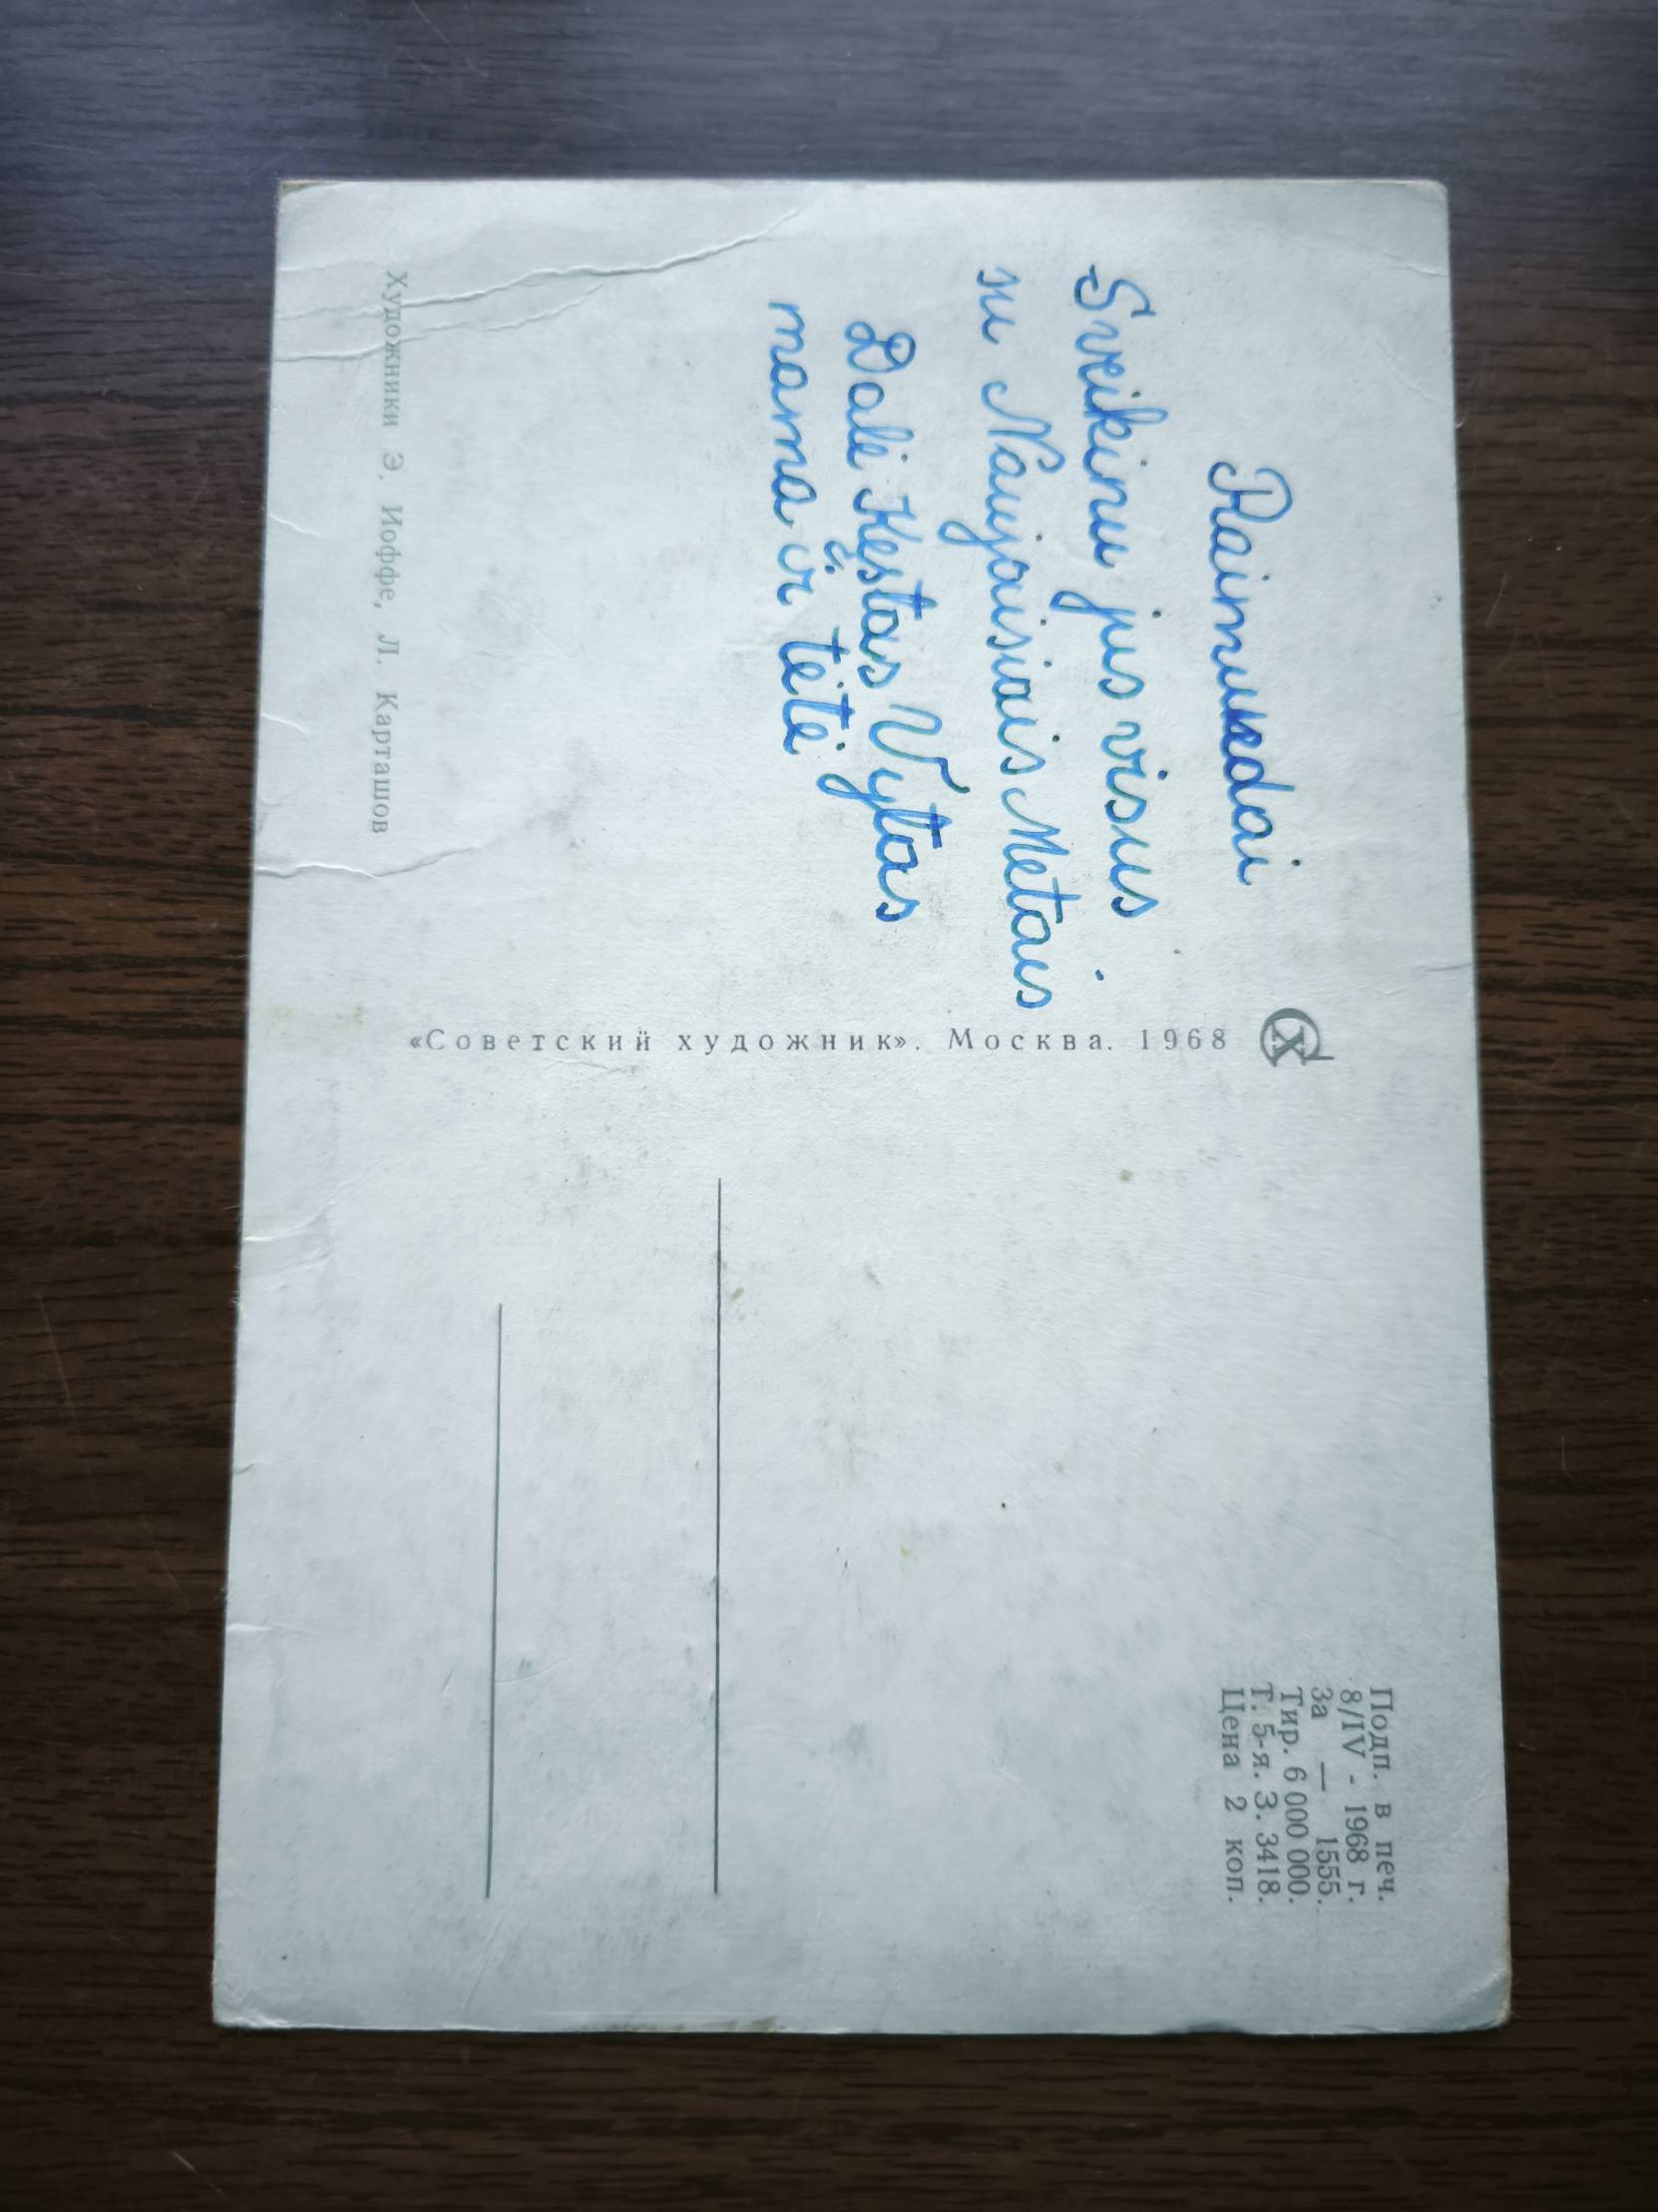 Raimundai
Sveikinu jus visus
su Naujaisiais Metais
Dalė Kęstas Vytas
mama ir tėtė
Художники Э. Иоффе, Л. Карташов
«Советский художник». Москва. 1968
Подп. в печ.
8/IV - 1968 г.
За — 1555.
Тир. 6 000 000.
Т. 5-я. З. 3418.
Цена 2 коп.